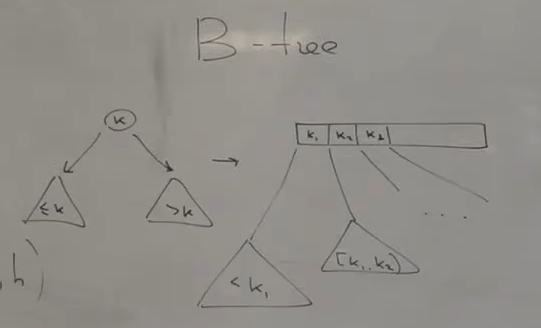 B-tree
k
k₁ k₂ k₃
≤k >k →
...
<k₁ [k₁..k₂)
,h)